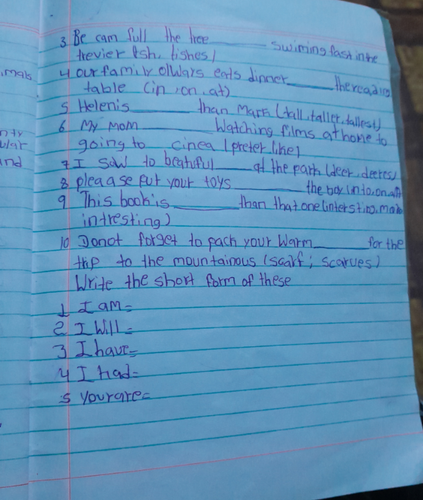 imals
nty
ular
and
3 Be cam full the hee ______ swiming fast in the
hevier (fish, fishes)
4 our family always eats dinner ______ the reading
table (in, on, at)
5 Helenis ______ than Mark (tall, taller, tallest)
6 My mom ______ Watching films at home to
going to cinea (prefer, like)
7 I saw to beatuful ______ at the park (deer, deeres)
8 pleqase put your toys ______ the box (into, on, at)
9 This book is ______ than that one (interstiog, more
intresting)
10 Do not forget to pach your Warm ______ for the
trip to the mountainous (scarf; scarves)
Write the short form of these
1 I am =
2 I Will =
3 I have =
4 I had =
5 you are =